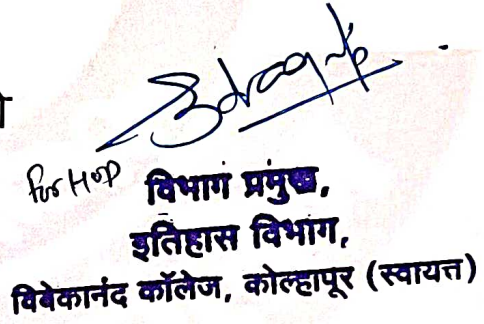 For HOD
विभाग प्रमुख,
इतिहास विभाग,
विवेकानंद कॉलेज, कोल्हापूर (स्वायत्त)